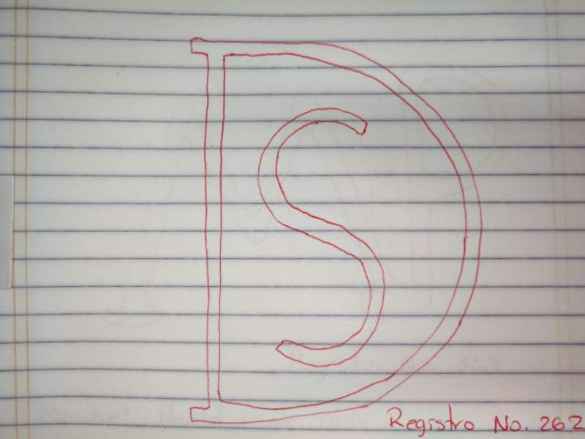 DS
Registro No. 262